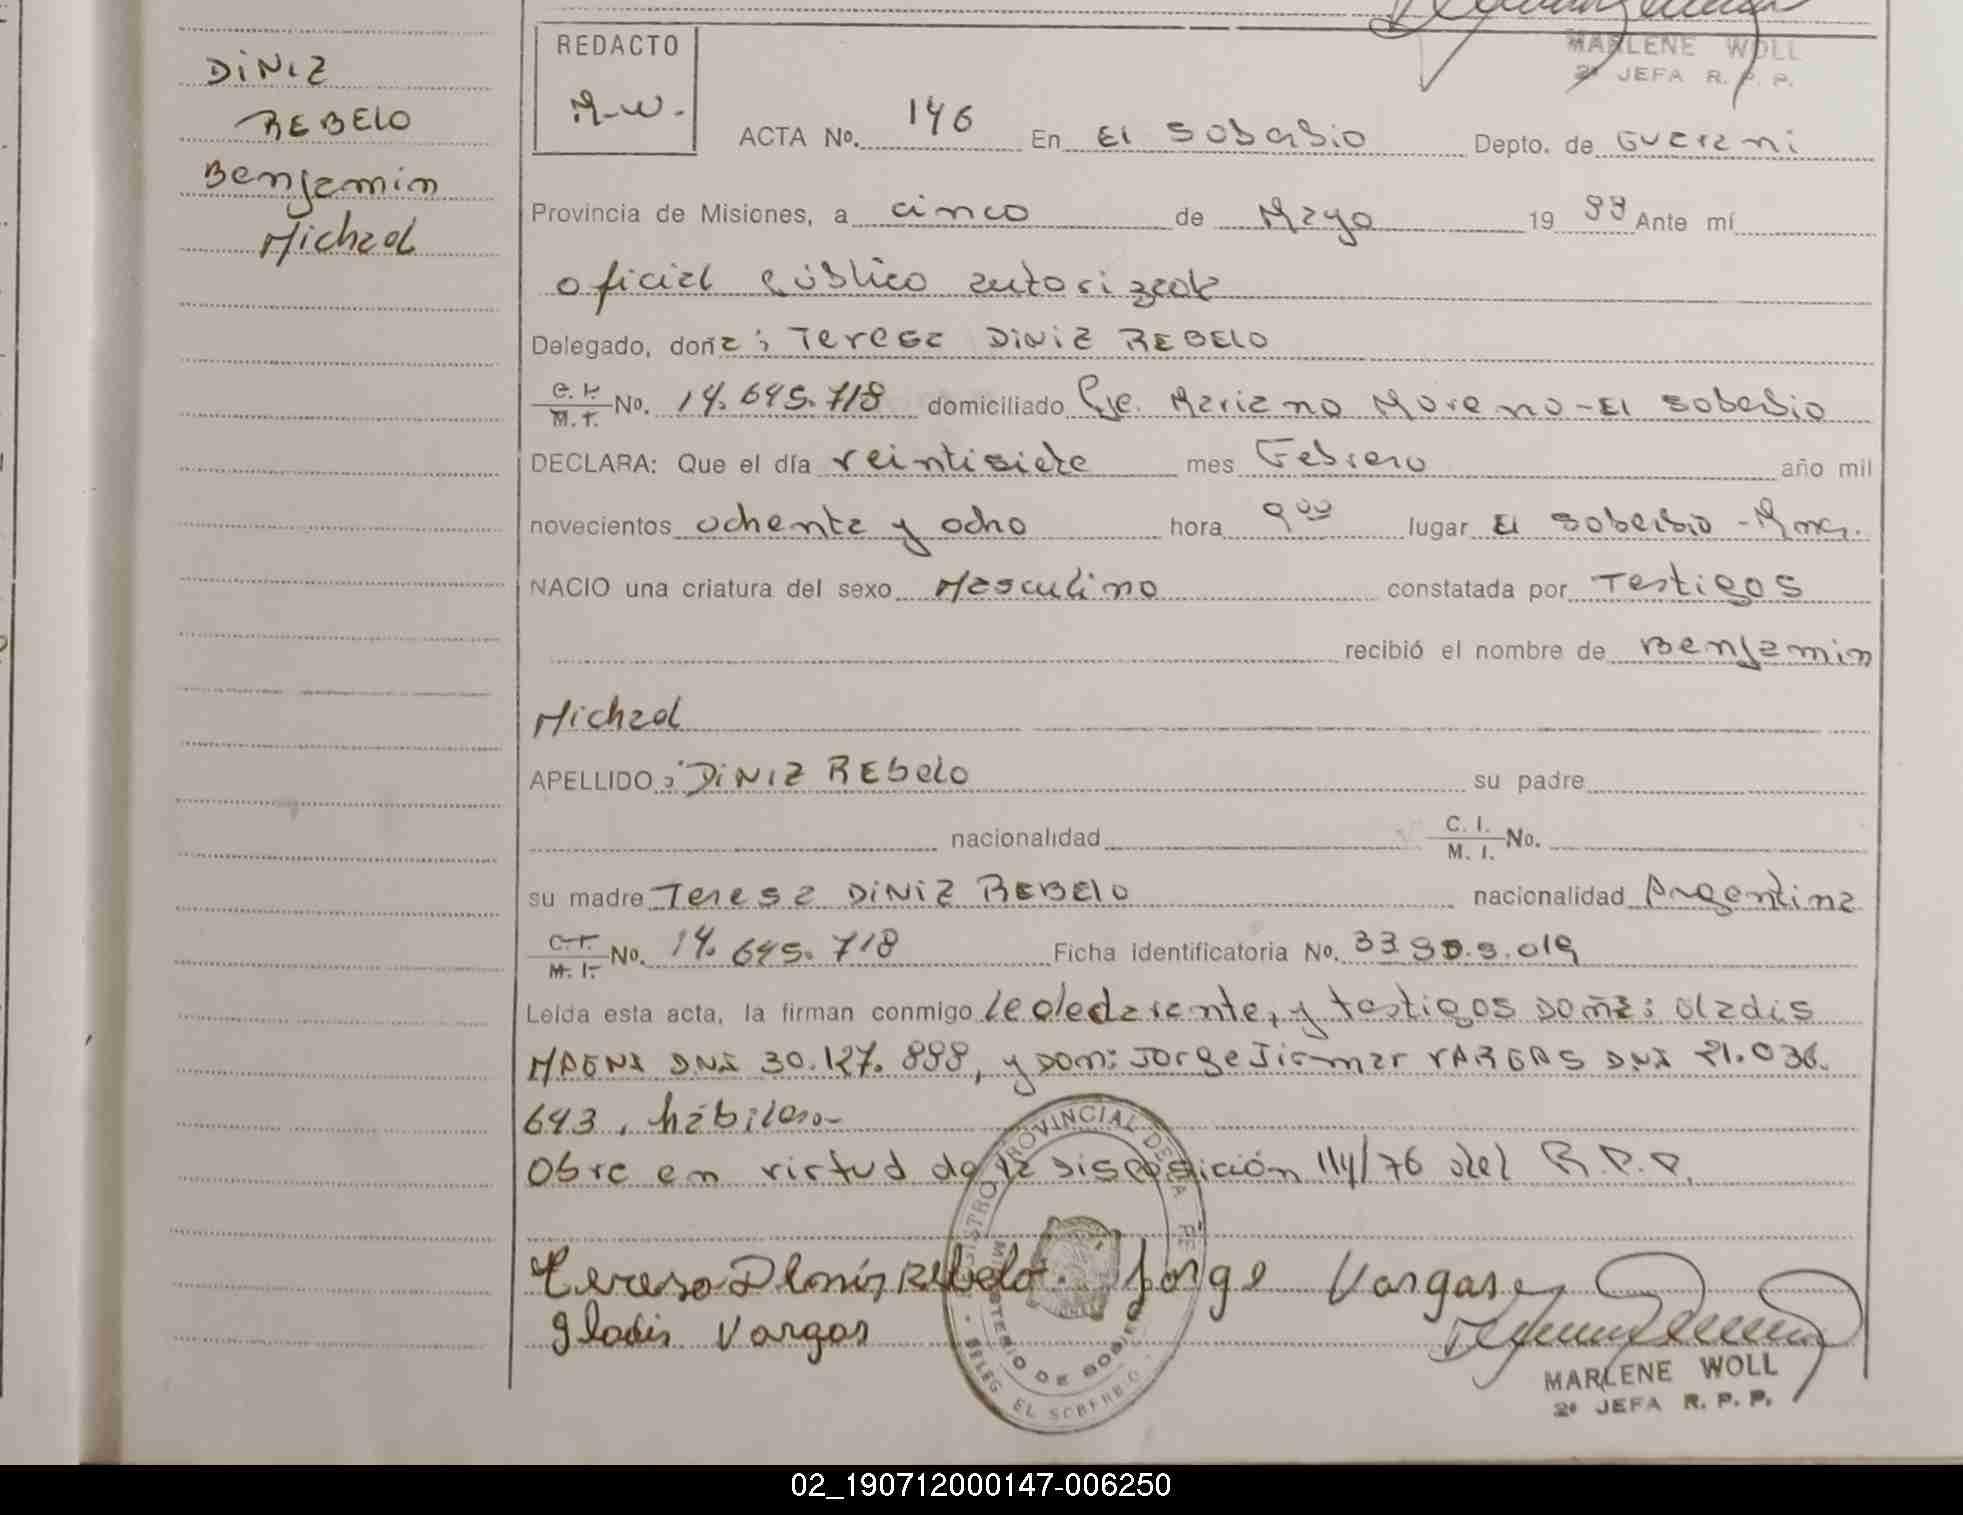 MARLENE WOLL
2ª JEFA R. P. P.
DiNiZ
REBELO
Benjamin
Michael
REDACTO
M-W.
ACTA No. 146 En El Soberbio Depto. de Guarani
Provincia de Misiones, a cinco de Mayo 19 99 Ante mí
oficial público autorizado
Delegado, doña: Teresa DiNiZ REBELO
C. I.
M. I. No. 14.645.718 domiciliado Pje. Mariano Moreno - El Soberbio
DECLARA: Que el día veintisiete mes Febrero año mil
novecientos ochenta y ocho hora 9 00 lugar El Soberbio - Mnes.
NACIO una criatura del sexo Masculino constatada por Testigos
recibió el nombre de Benjamin
Michael
APELLIDO: DiNiZ REBelo su padre
nacionalidad C. I.
M. I. No.
su madre Teresa DiNiZ REBELO nacionalidad Argentina
C. I.
M. I. No. 14.645.718 Ficha identificatoria No.
Leida esta acta, la firman conmigo la declarante, y testigos Doña: Gladis
DNI 30.127.888, y Don: Jorge VARGAS DNI 21.036.
643, hábiles.-
Obra en virtud de la Disposición 114/76 del R.P.P.
Teresa Diniz Rebelo. Jorge Vargas
Gladis Vargas
REGISTRO PROVINCIAL DE LAS PE
MINISTERIO DE GOBIER
DELEG EL SOBERBIO
MARLENE WOLL
2ª JEFA R. P. P.
02_190712000147-006250